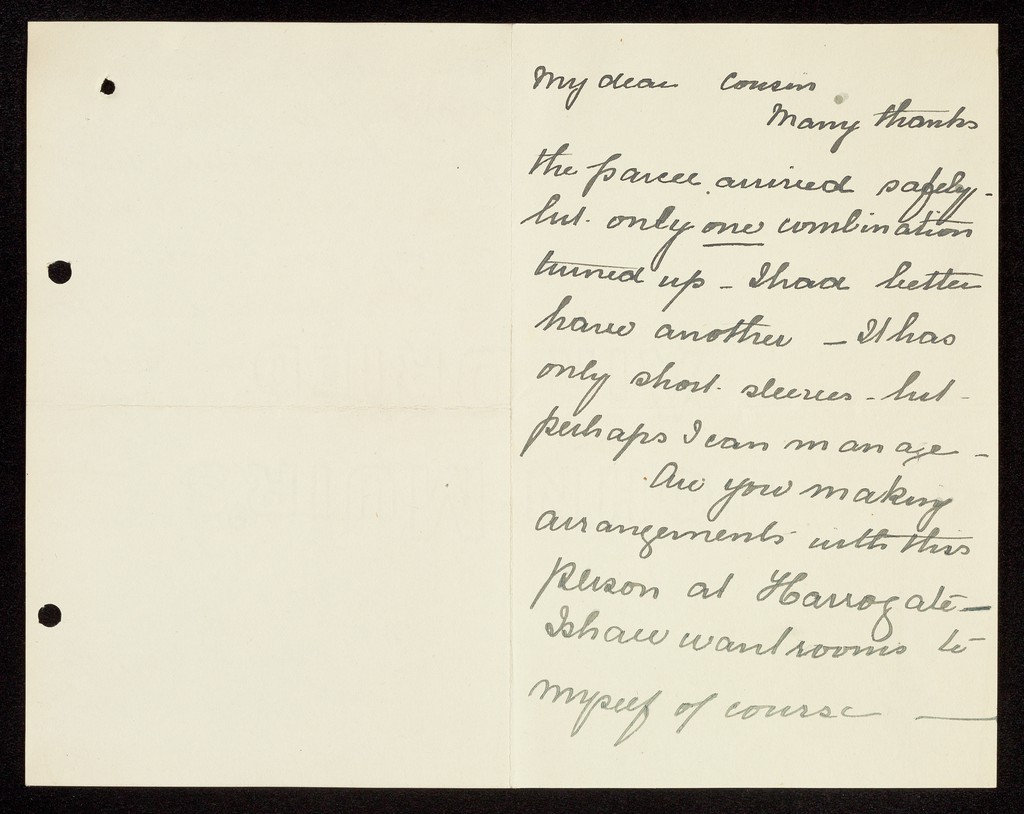 My dear Cousin
Many thanks
the parcel arrived safely -
but only one combination
turned up - I had better
have another - It has
only short sleeves - but -
perhaps I can manage -
Are you making
arrangements with this
person at Harrogate -
I shall want rooms to
myself of course —